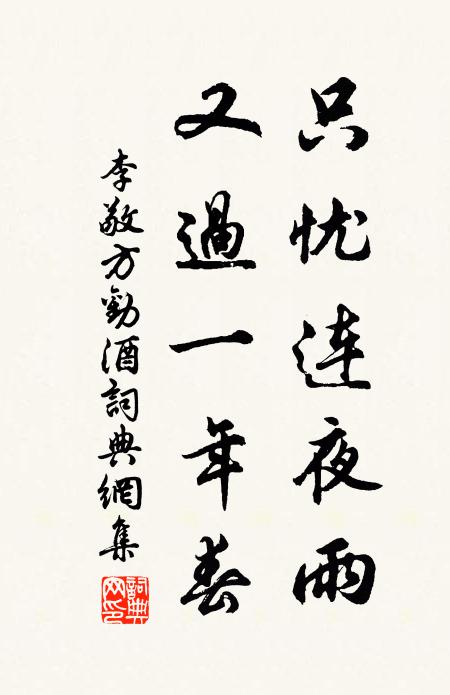 只忧连夜雨
又過一年春
李敬方勸酒詞典網集
詞典網印